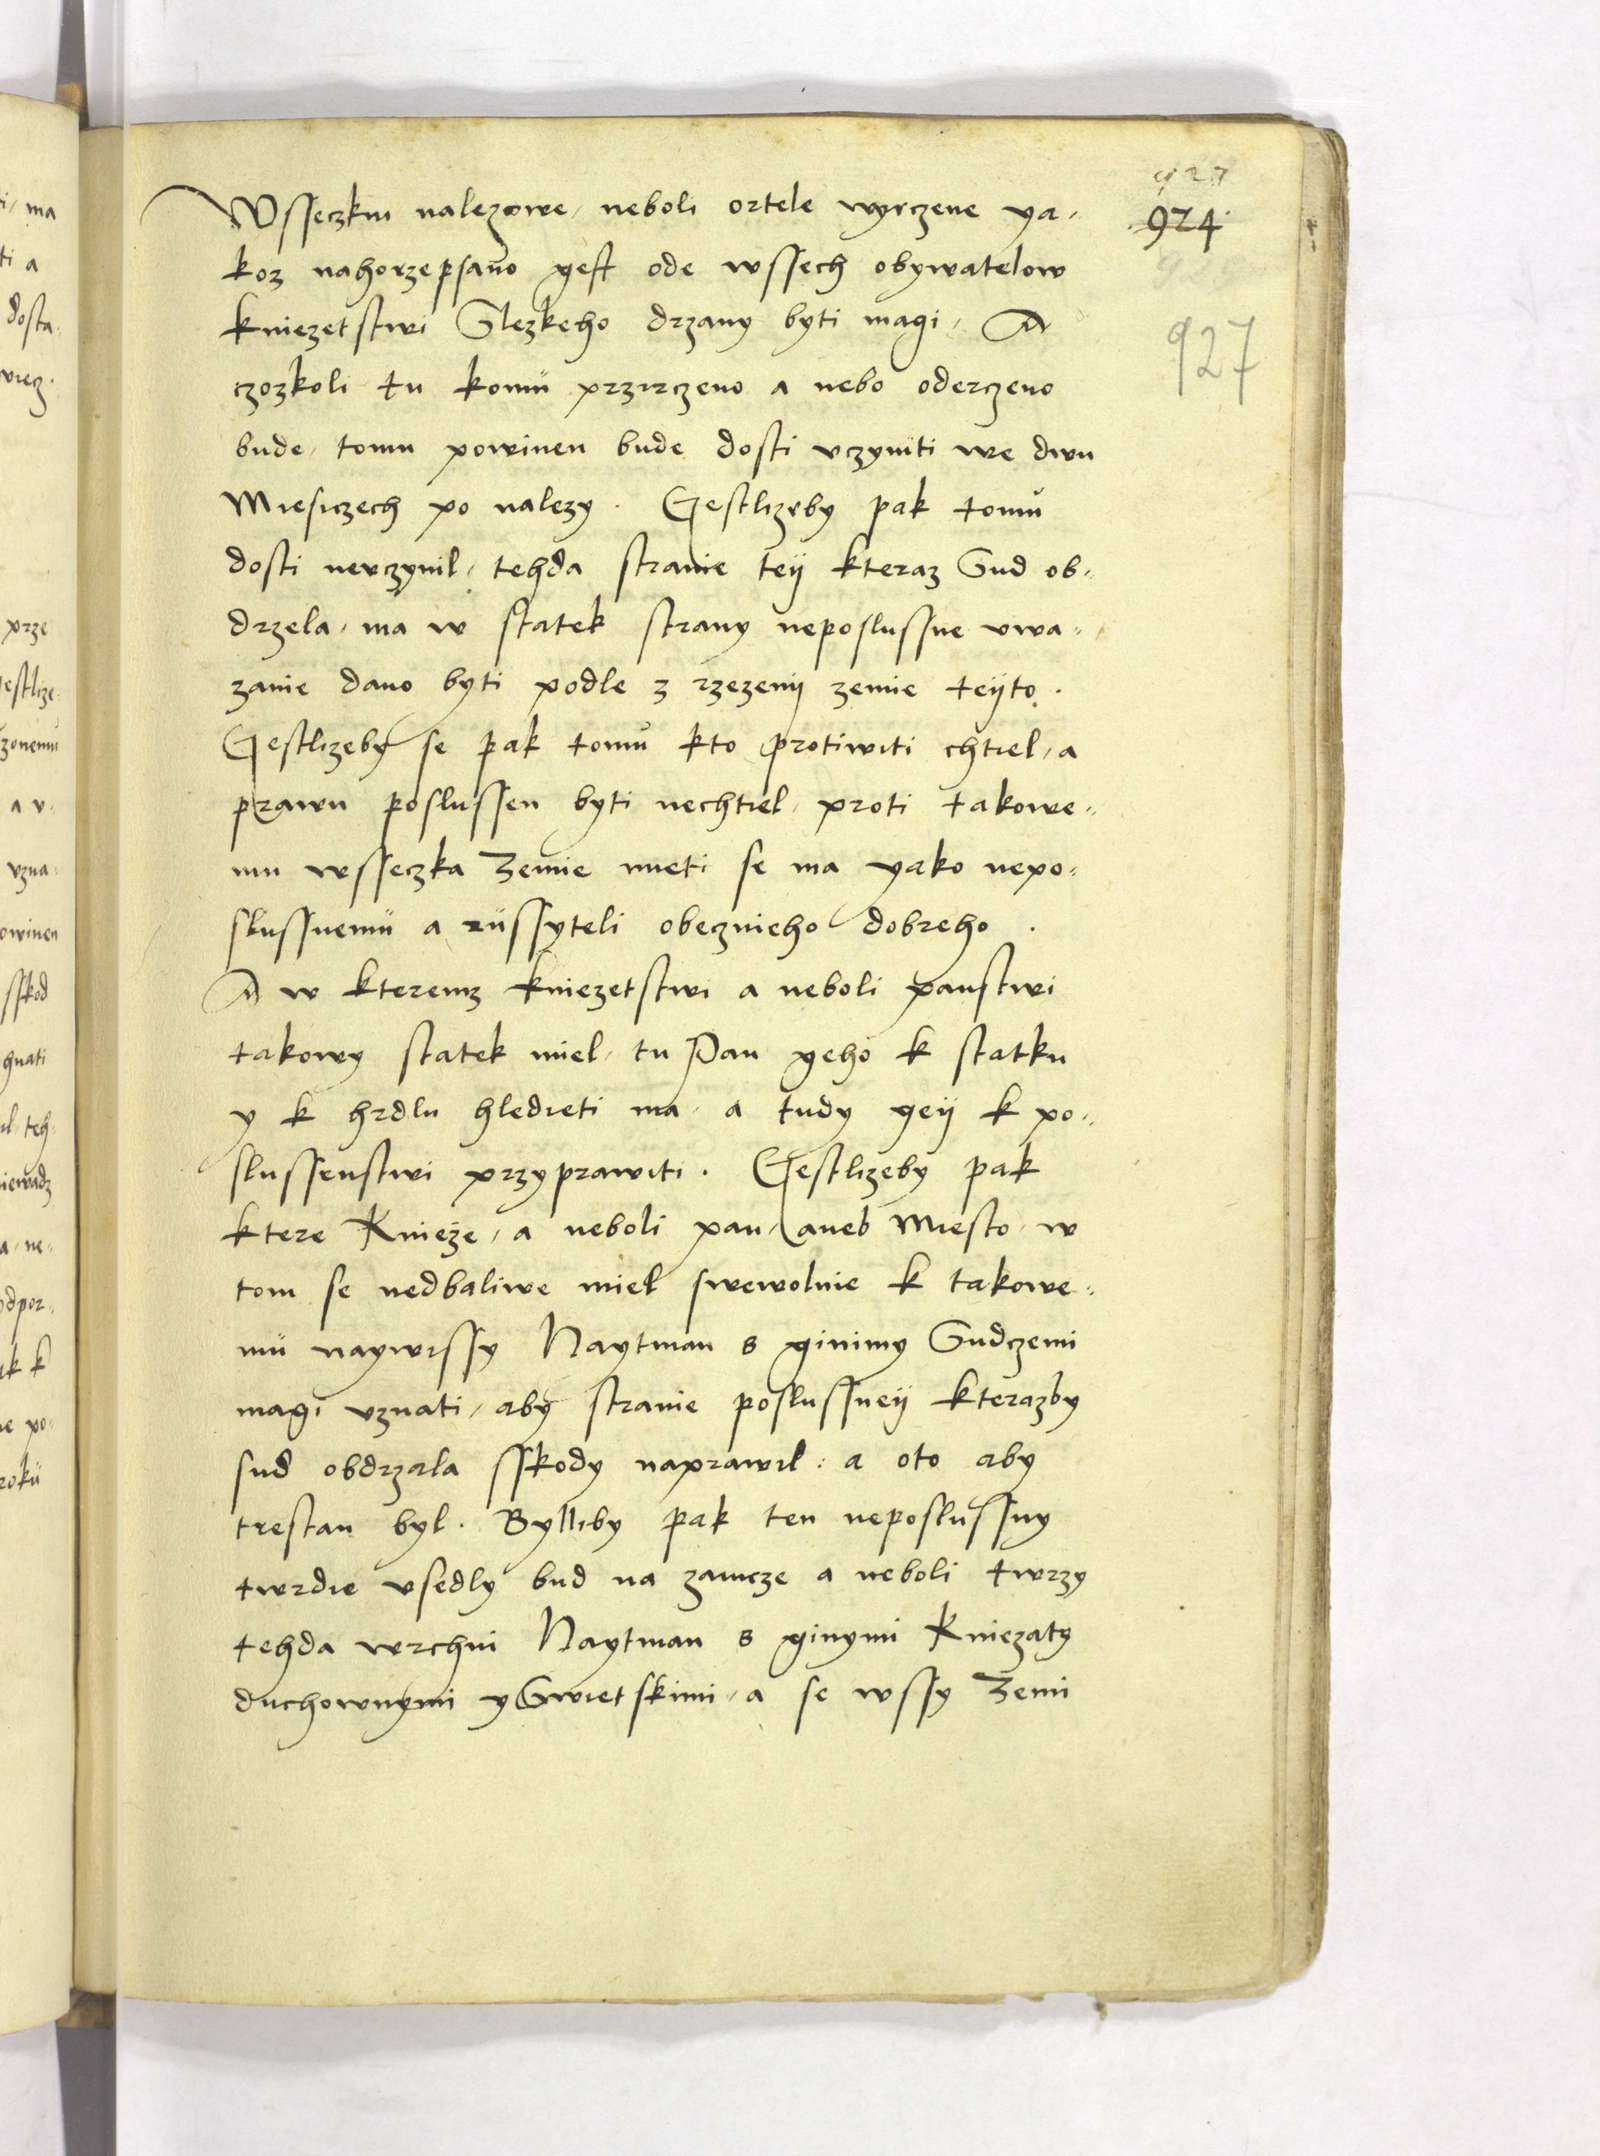 927
924
927
Wsseczkni nalezowe, neboli ortele wyrczene ya-
koz nahorzepsano gest ode wssech obywatelow
kniezetstwi Slezkeho drzany byti magi, A
czozkoli tu komu przirczeno a nebo oderczeno
bude, tomu powinen bude dosti vczyniti we dwu
Miesiczech po nalezy. Gestlizeby pak tomu
dosti nevczynil, tehda stranie teij kteraz Sud ob-
drzela, ma w statek strany neposlussne vwa-
zanie dano byti podle z rzezenij zemie teijto.
Gestlizeby se pak tomu kto protiwiti chtiel, a
prawu poslussen byti nechtiel, proti takowe-
mu wsseczka Zemie mieti se ma yako nepo-
slussnemu a russyteli obecznieho dobreho.
A w kteremz kniezetstwi a neboli panstwi
takowy statek miel, tu Pan geho k statku
y k hrdlu hledieti ma, a tudy geij k po-
slussenstwi przyprawiti. Gestlizeby pak
ktere Knieze, a neboli pan, aneb Miesto, w
tom se nedbaliwe miel swewolnie k takowe-
mu naywissy Haytman s ginimy Sudczemi
magi vznati, aby stranie poslussneij kterazby
sud obdrzala sskody naprawil, a oto aby
trestan byl. Bylliby pak ten neposlussny
twrdie vsedly bud na zamcze a neboli twrzy
tehda wrchni Haytman s ginymi Kniezaty
duchownymi y Swietskimi, a se wssy Zemi